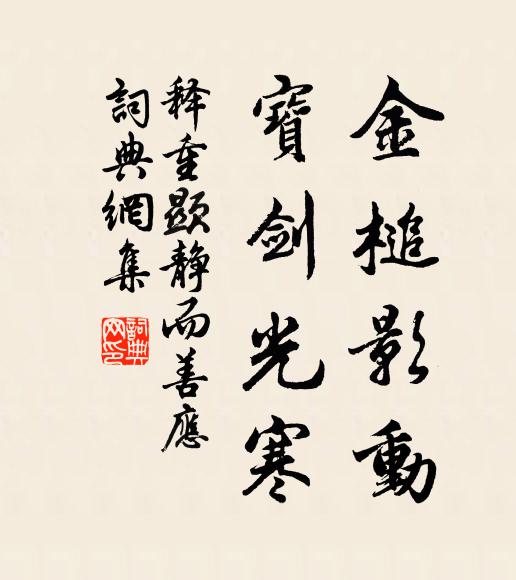 金槌影動
寶劍光寒
释重顯靜而善應
詞典網集
詞典
网印